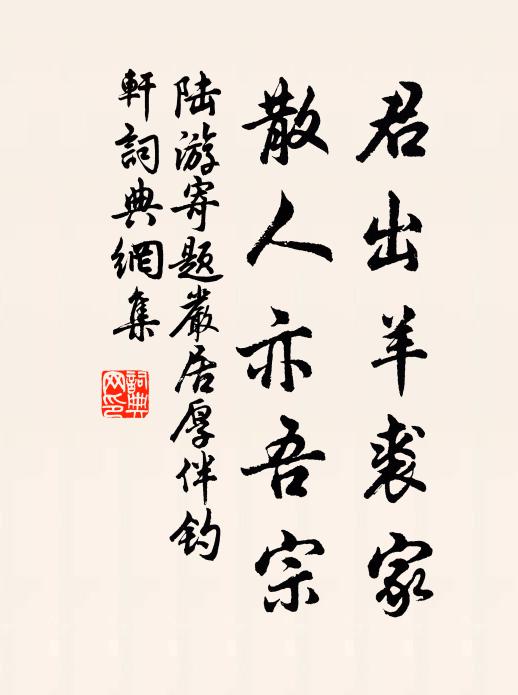 君出羊裘家
散人亦吾宗
陆游寄题嚴居厚伴钓
軒詞典網集
詞典
网印